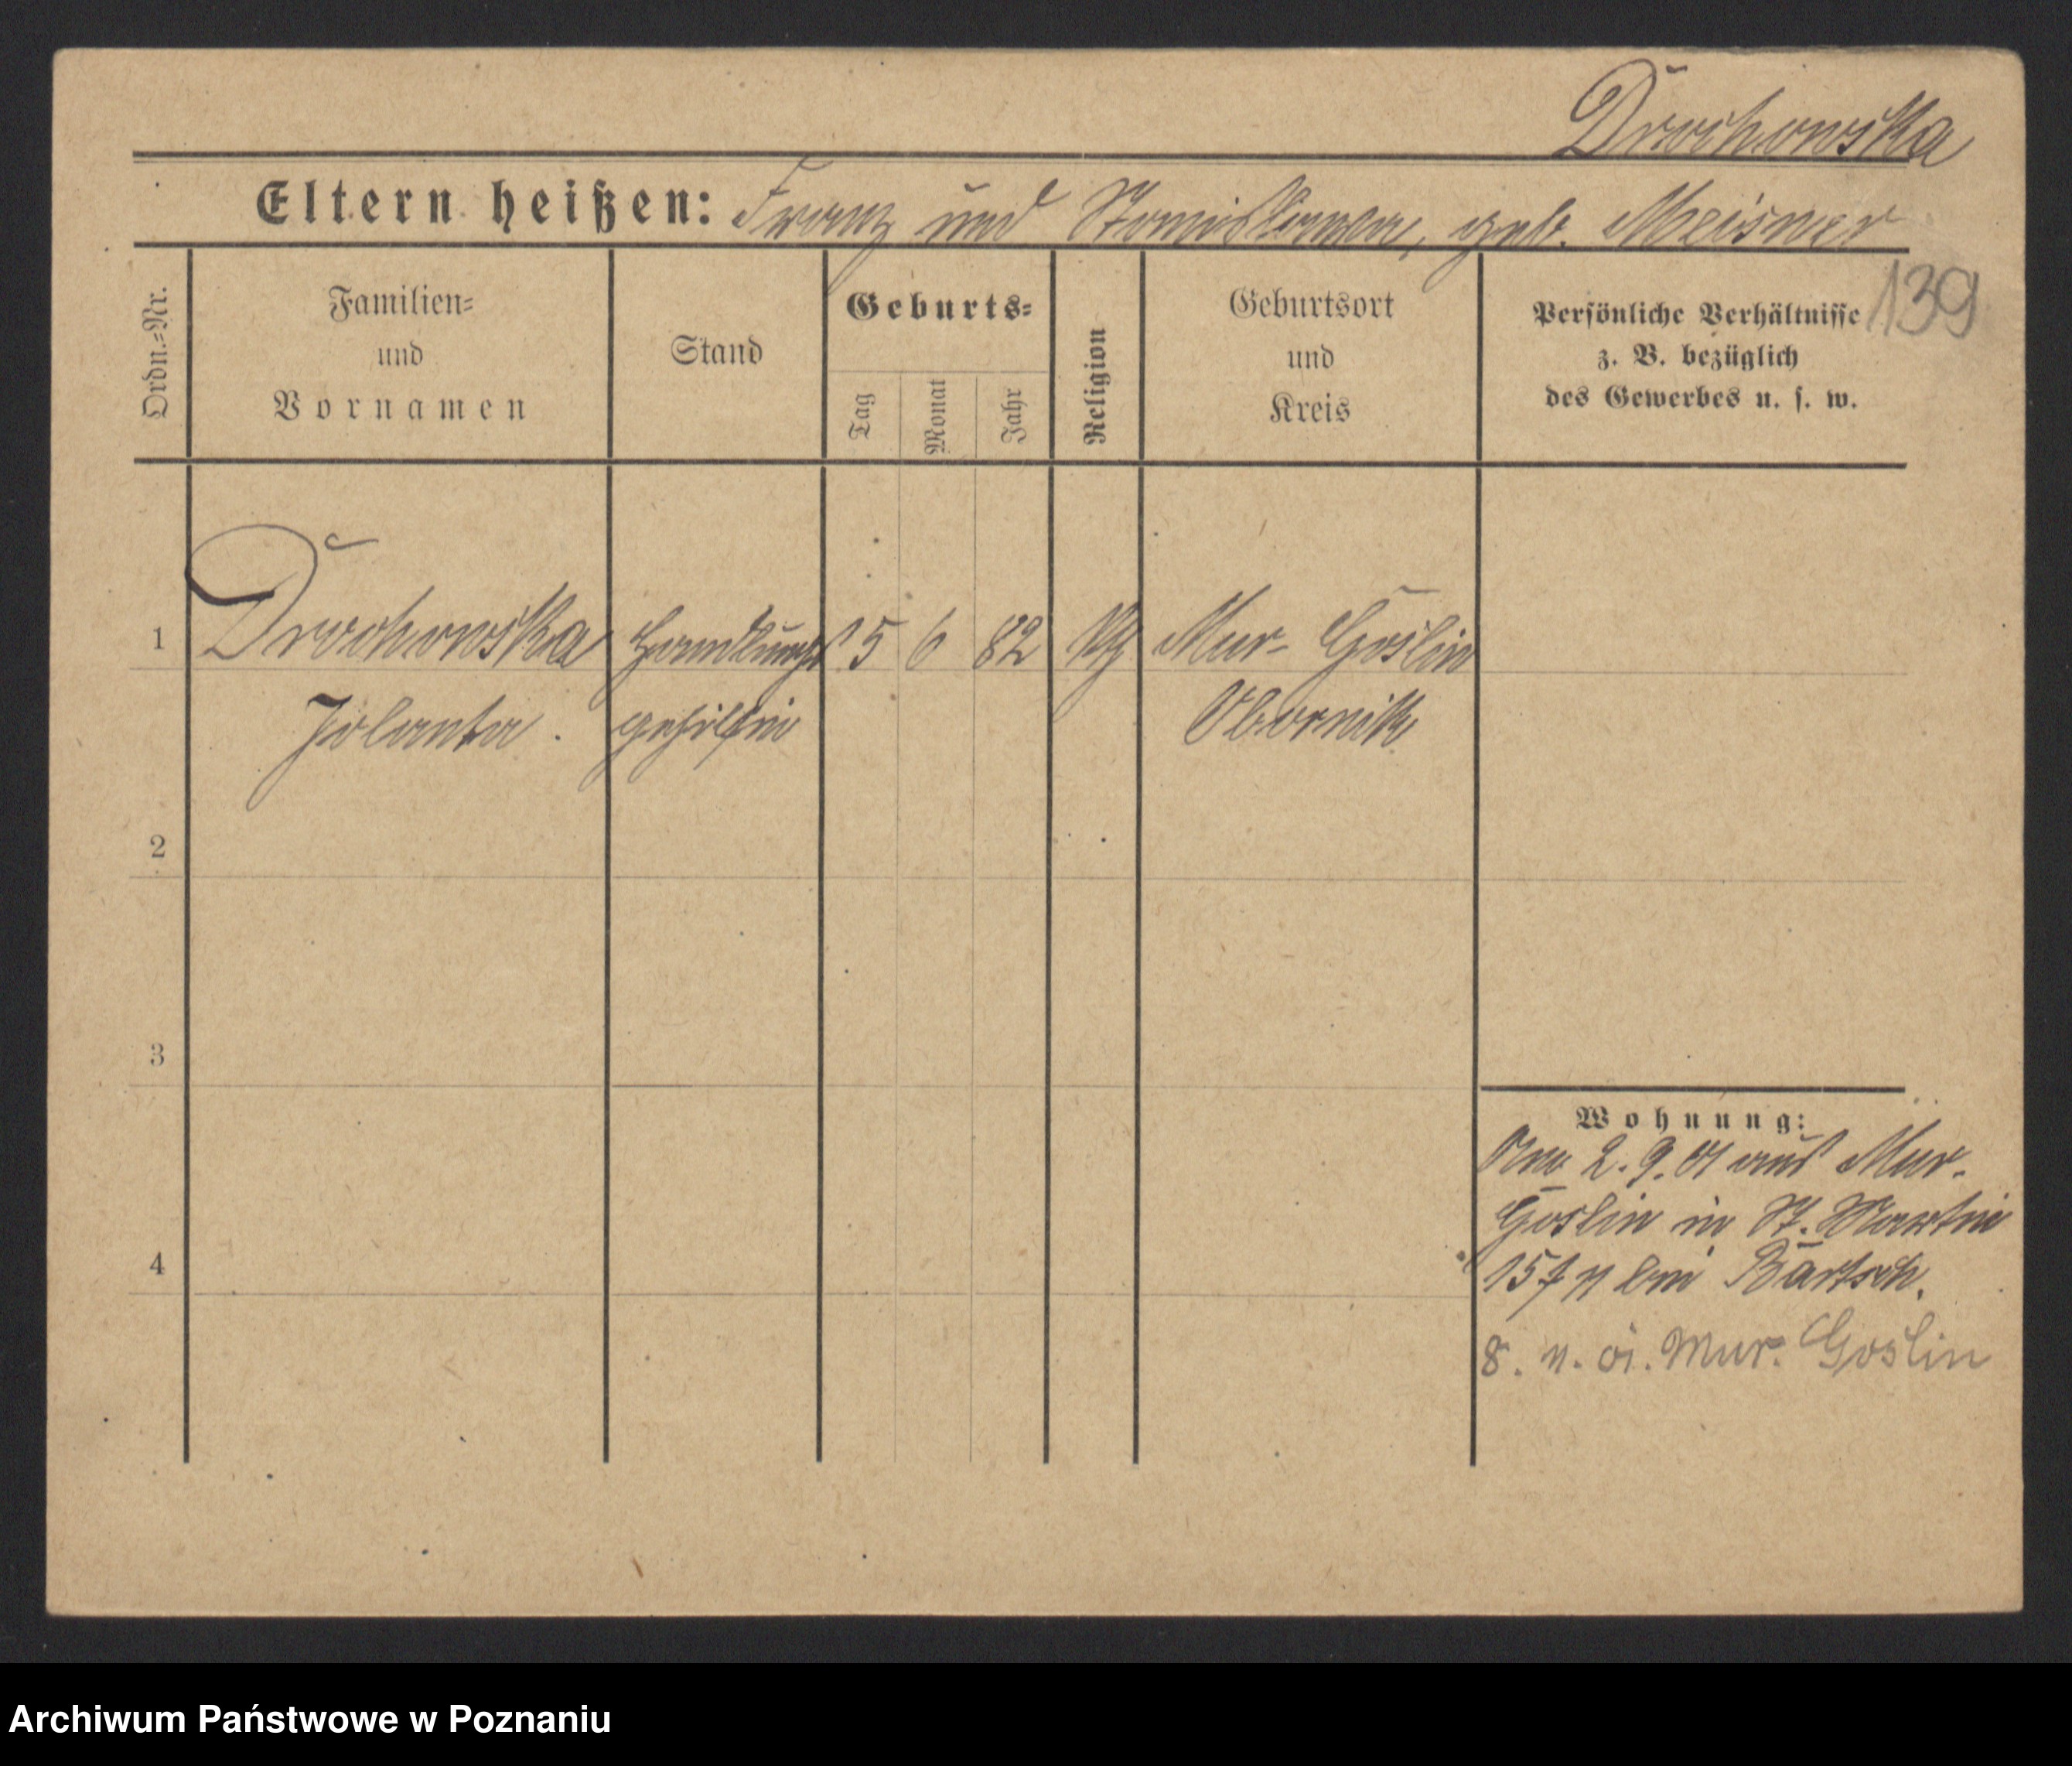 Drochowska
Eltern heißen: Franz und Stanislawa, geb. Meisner
139
Ordn.=Nr.
Familien=
und
Vornamen
Stand
Geburts=
Tag
Monat
Jahr
Religion
Geburtsort
und
Kreis
Persönliche Verhältnisse
z. B. bezüglich
des Gewerbes u. s. w.
1 Drochowska Handlungs 15 6 82 Mur- Goslin
Jolanta. gehilfin Obornik
2
3
4
Wohnung:
2.9.01 aus Mur.
Goslin in St. Martin
bei Bartsch.
8. 11. 01. Mur. Goslin
Archiwum Państwowe w Poznaniu